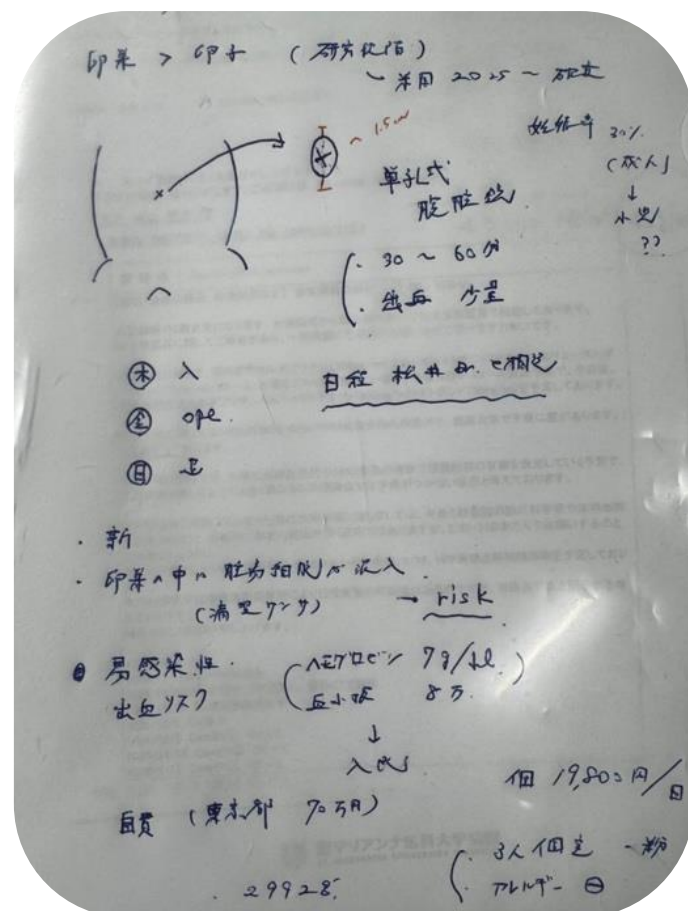 卵巣 > 卵子 (研究段階)
採用 2025～
~ 1.5cm
妊娠率 30%
(成人)
↓
小児
??
単孔式
腹腔鏡
・30 ～ 60分
・出血 少量
木 入
金 ope.
日 退
日程 松井 Dr. と相談
・新
・卵巣の中に 腫瘍細胞が混入
→ risk
易感染性
出血リスク
(ヘモグロビン 7g/dl
血小板 8万)
↓
自費 (東京都 70万円)
個 19,800円/日
3人個室
アレルギー ㊀